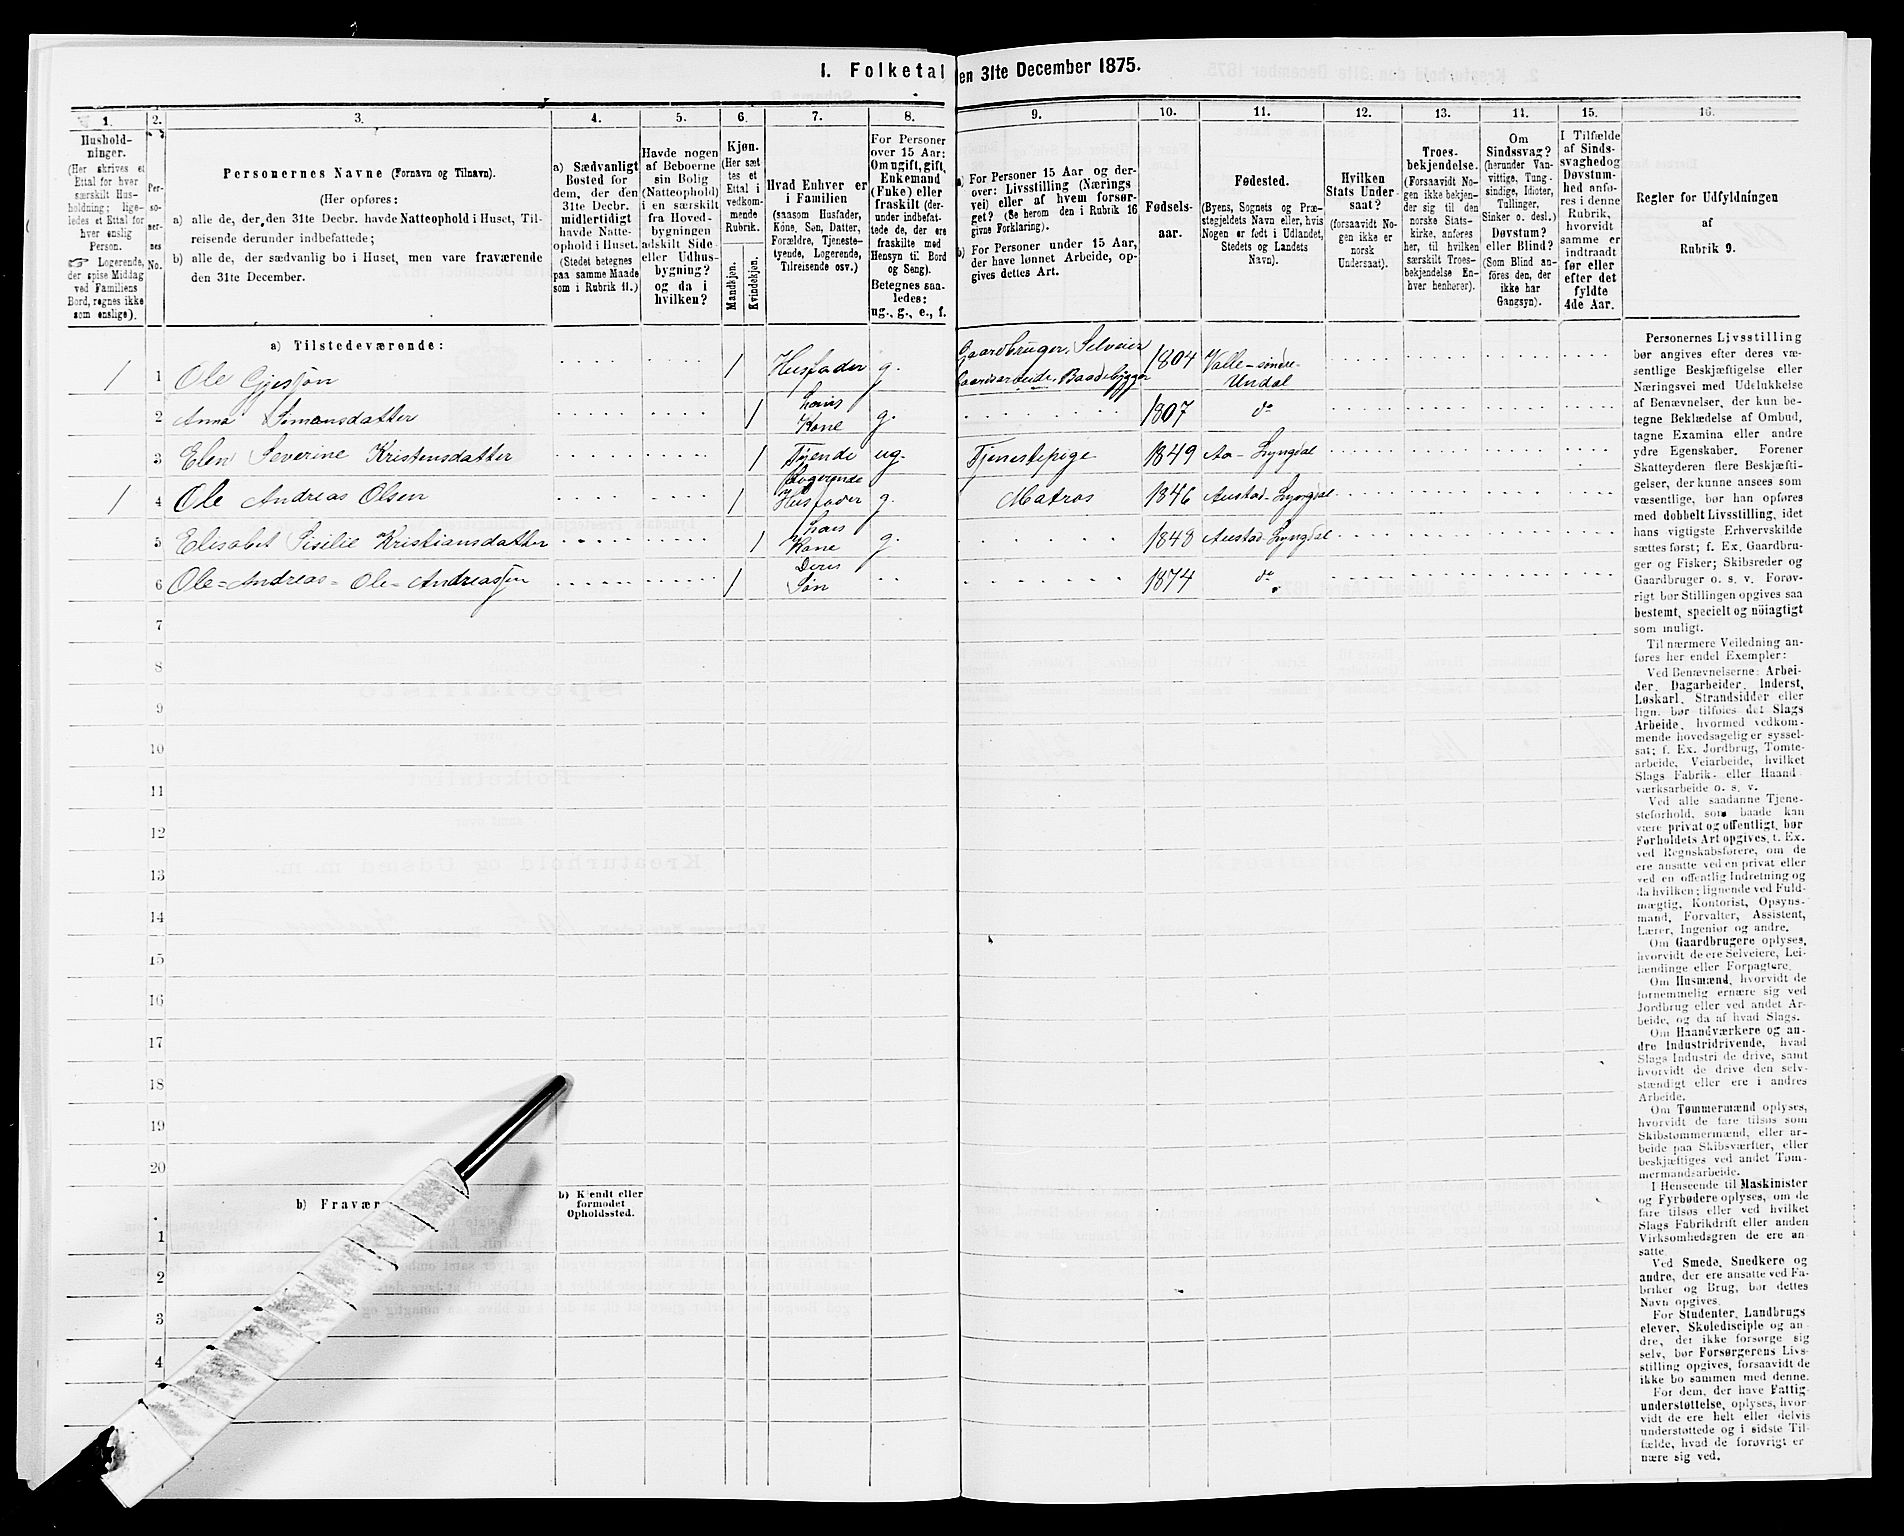 I. Folketal den 31te December 1875.
1.
Hushold-
ninger.
(Her skrives et
Ettal for hver
særskilt Hus-
holdning; lige-
ledes et Ettal for
hver enslig
Person.
☞ Logerende,
der spise Middag
ved Familiens
Bord, regnes ikke
som enslige).
2.
Per-
so-
ner-
nes
No.
3.
Personernes Navne (Fornavn og Tilnavn).
(Her opføres:
a) alle de, der den 31te Decbr. havde Natteophold i Huset, Til-
reisende derunder indbefattede;
b) alle de, der sædvanlig bo i Huset, men vare fraværende
den 31te December.
4.
a) Sædvanligt
Bosted for
dem, der den
31te Decbr.
midlertidigt
havde Natte-
ophold i Huset.
(Stedet betegnes
paa samme Maade
som i Rubrik 11.)
5.
Havde nogen
af Beboerne
sin Bolig
(Natteophold)
i en særskilt
fra Hoved-
bygningen
adskilt Side-
eller Udhus-
bygning?
og da i
hvilken?
6.
Kjøn.
(Her sæt-
tes et
Ettal i
vedkom-
mende
Rubrik.
Mandkjøn.
Kvindekjøn.
7.
Hvad Enhver er
i Familien
(saasom Husfader,
Kone, Søn, Datter,
Forældre, Tjeneste-
tyende, Logerende,
Tilreisende osv.)
8.
For Personer
over 15 Aar:
Om ugift, gift,
Enkemand
(Enke) eller
fraskilt (der-
under indbefat-
tede de, der ere
fraskilte med
Hensyn til Bord
og Seng).
Betegnes saa-
ledes:
ug., g., e., f.
9.
a) For Personer 15 Aar og der-
over: Livsstilling (Nærings-
vei) eller af hvem forsør-
get? (Se herom den i Rubrik 16
givne Forklaring).
b) For Personer under 15 Aar,
der have lønnet Arbeide, op-
gives dettes Art.
10.
Fødsels-
aar.
11.
Fødested.
(Byens, Sognets og Præ-
stegjeldets Navn eller, hvis
Nogen er født i Udlandet,
Stedets og Landets
Navn).
12.
Hvilken
Stats Under-
saat?
(forsaavidt No-
gen ikke er
norsk
Undersaat).
13.
Troes-
bekjendelse.
(Forsaavidt No-
gen ikke bekjen-
der sig til den
norske Stats-
kirke, anføres
her, til hvilken
særskilt Troes-
bekjendelse En-
hver henhører).
14.
Om
Sindssvag?
(herunder Van-
vittige, Tung-
sindige, Idioter,
Tullinger,
Sinker o. desl.)
Døvstum?
eller Blind?
(Som Blind an-
føres den, der
ikke har
Gangsyn).
15.
I Tilfælde
af Sinds-
svaghed og
Døvstum-
hed anfø-
res i denne
Rubrik,
hvorvidt
samme er
indtraadt
før eller
efter det
fyldte
4de Aar.
16.
Regler for Udfyldningen
af
Rubrik 9.
a) Tilstedeværende:
1 1 Ole Gjersøn 1 Husfader g. Gaardbruger, Selveier Gaardsarbeide, Baadsbygger 1804 Valle-søndre-Undal
2 Anna Simonsdatter 1 hans Kone g. 1807 do
3 Elen Severine Kristensdatter 1 Tjende ug. Tjenestepige 1849 Aa-Lyngdal
1 4 Ole Andreas Olsen 1 Logerende Husfader g. Matros 1846 Austad-Lyngdal
5 Elisabet Sisilie Kristiansdatter 1 hans Kone g. 1848 Austad-Lyngdal
6 Ole-Andreas-Ole-Andreassen 1 Deres Søn 1874 do
7
8
9
10
11
12
13
14
15
16
17
18
19
20
b) Fravær
b) Kjendt eller
formodet
Opholdssted.
1
2
3
4
Personernes Livsstilling
bør angives efter deres væ-
sentlige Beskjæftigelse eller
Næringsvei med Udelukkelse
af Benævnelser, der kun be-
tegne Beklædelse af Ombud,
tagne Examina eller andre
ydre Egenskaber. Forener
Skatteyderen flere Beskjæfti-
gelser, der kunne ansees som
væsentlige, bør han opføres
med dobbelt Livsstilling, idet
hans vigtigste Erhvervskilde
sættes først; f. Ex. Gaardbru-
ger og Fisker; Skibsreder og
Gaardbruger o. s. v. Forøv-
rigt bør Stillingen opgives saa
bestemt, specielt og nöiagtigt
som muligt.
Til nærmere Veiledning an-
føres her endel Exempler:
Ved Benævnelserne: Arbei-
der, Dagarbeider, Inderst,
Løskarl, Strandsidder eller
lign. bør tilføies det Slags
Arbeide, hvormed vedkom-
mende hovedsagelig er syssel-
sat; f. Ex. Jordbrug, Tomte-
arbeide, Veiarbeide, hvilket
Slags Fabrik- eller Haand-
værksarbeide o. s. v.
Ved alle saadanne Tjene-
steforhold, som baade kan
være privat og offentligt, bør
Forholdets Art opgives, t. Ex.
ved Regnskabsførere, om de
ere ansatte ved en privat eller
ved en offentlig Indretning og
da hvilken; lignende ved Fuld-
mægtig, Kontorist, Opsyns-
mand, Forvalter, Assistent,
Lærer, Ingeniør og andre.
Om Gaardbrugere oplyses,
hvorvidt de ere Selveiere, Lei-
lændinge eller Forpagtere.
Om Husmænd, hvorvidt de
fornemmelig ernære sig ved
Jordbrug eller ved andet Ar-
beide, og da af hvad Slags.
Om Haandværkere og an-
dre Industridrivende, hvad
Slags Industri de drive, samt
hvorvidt de drive den selv-
stændigt eller ere i andres
Arbeide.
Om Tømmermænd oplyses,
hvorvidt de fare tilsøs som
Skibstømmermænd, eller ar-
beide paa Skibsværfter, eller
beskjæftiges ved andet Tøm-
mermandsarbeide.
I Henseende til Maskinister
og Fyrbødere oplyses, om de
fare tilsøs eller ved hvilket
Slags Fabrikdrift eller anden
Virksomhedsgren de ere an-
satte.
Ved Smede, Snedkere og
andre, der ere ansatte ved Fa-
briker og Brug, bør dettes
Navn opgives.
For Studenter, Landbrugs-
elever, Skoledisciple og an-
dre, der ikke forsørge sig
selv, bør Forsørgerens Livs-
stilling opgives, forsaavidt de
ikke bo sammen med denne.
For dem, der have Fattig-
understøttelse, oplyses, hvor-
vidt de ere helt eller delvis
understøttede og i sidste Til-
fælde, hvad de forøvrigt er-
nære sig ved.